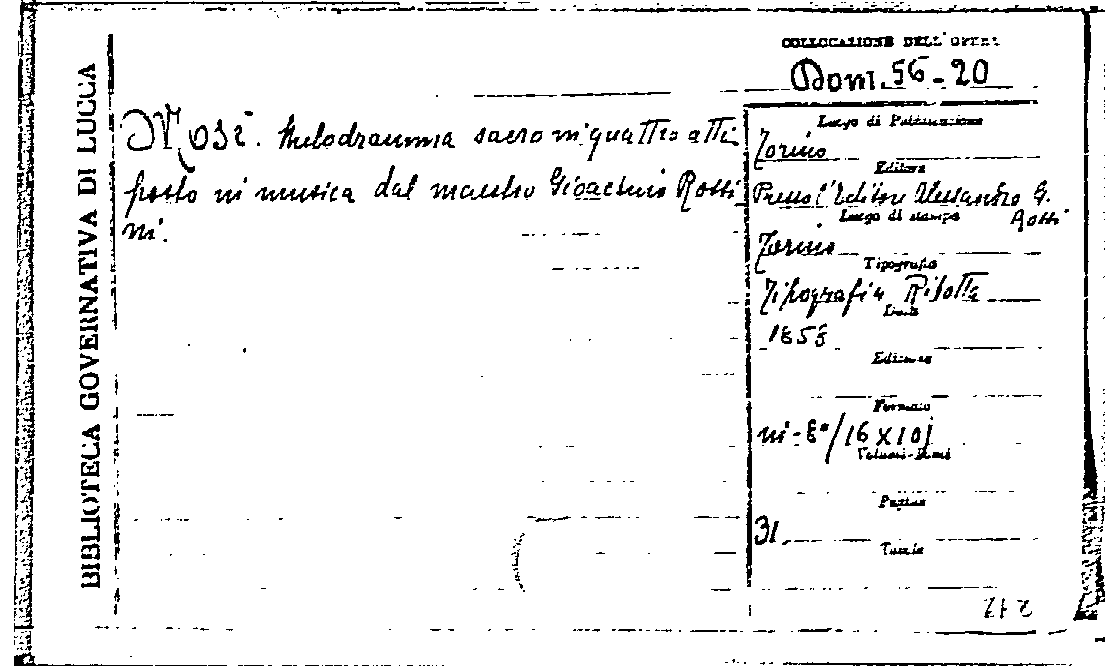 BIBLIOTECA GOVERNATIVA DI LUCCA
COLLOCAZIONE DELL'OPERA
Dom. 56-20
Mosè. Melodramma sacro in quattro atti
posto in musica dal maestro Gioachino Rossi
ni.
Luogo di Pubblicazione
Torino
Editore
Presso l'Editore Alessandro G.
Rossi
Luogo di stampa
Torino
Tipografia
Tipografia
Data
1853
Edizione
Formato
in-8°/(16 X 10)
Volumi-Tomi
Pagine
31
Tavole